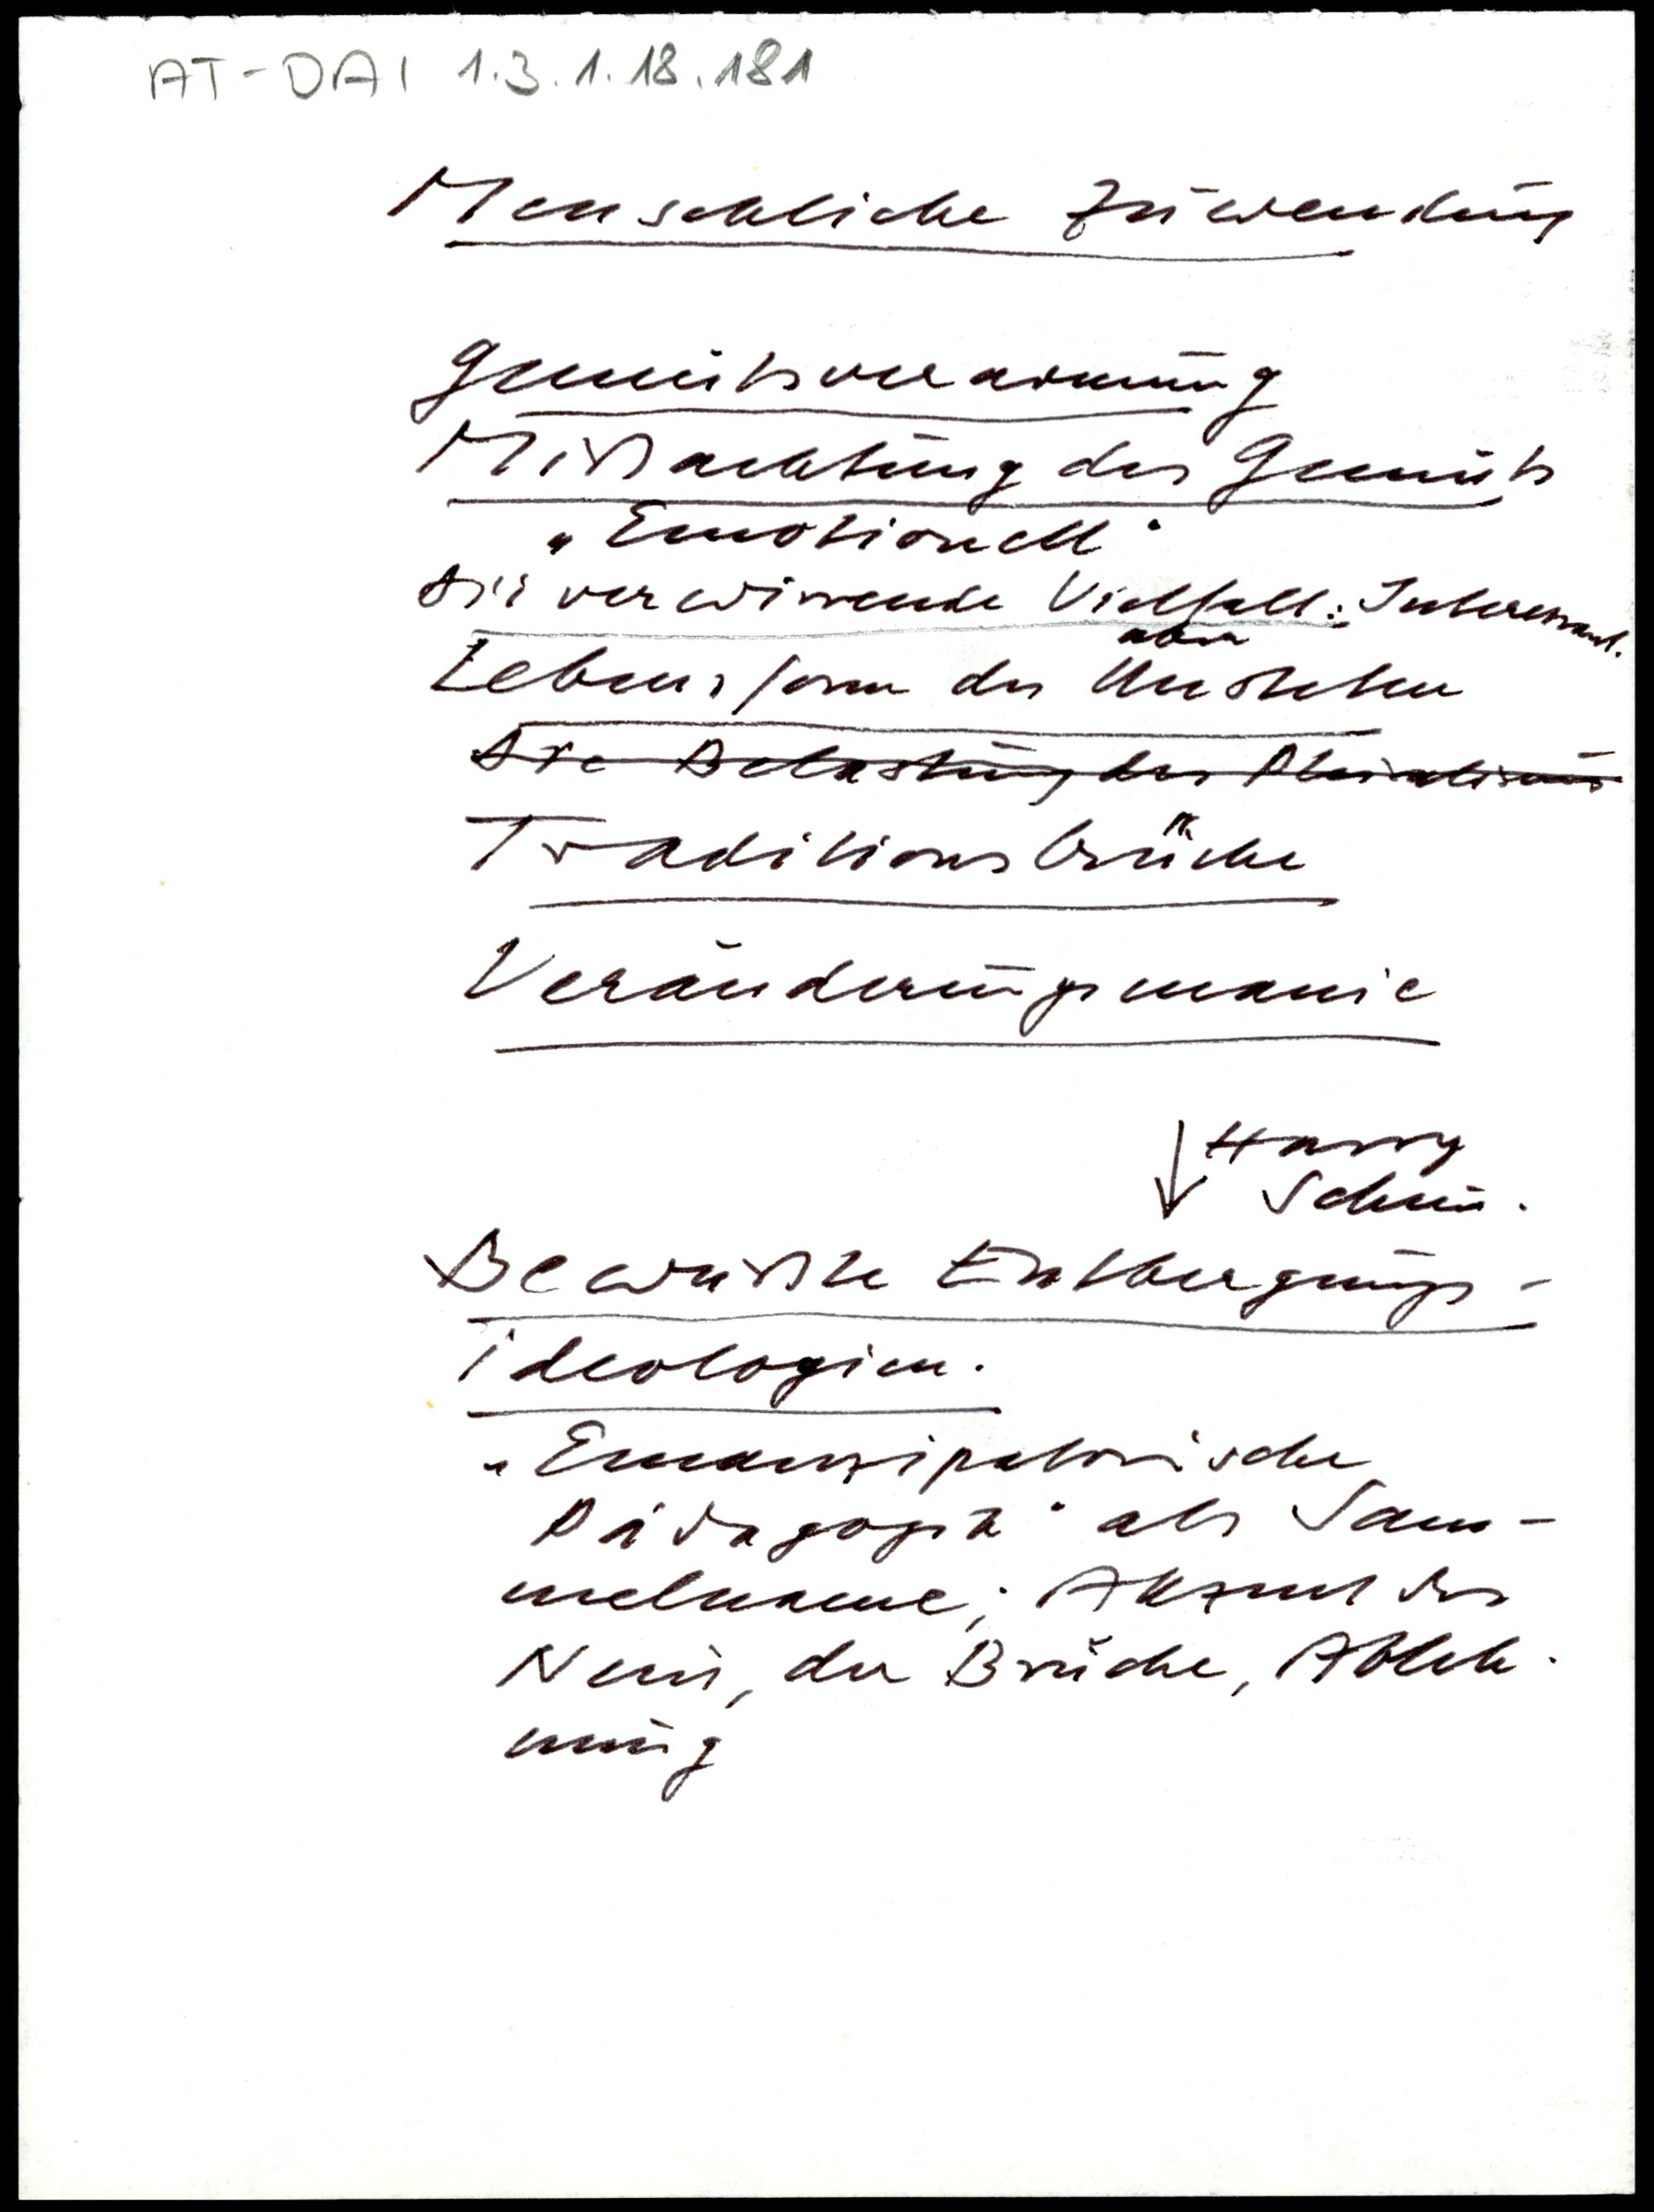 AT-DAI 1.3.1.18.181
Menschliche Zuwendung
Gemütsverarmung
Mißachtung des Gemüts
„Emotionell"
Die verwirrende Vielfalt: Interessant.
aber
Lebensform des Unsteten
Die Belastung des Pluralismus
Traditionsbrüche
Veränderungsmanie
↓ Harry
Schm.
Bewußte Entbergungs-
ideologien.
„Emanzipatorische
Pädagogik" als Sam-
melname; Akzent des
Nein, der Brüche, Ableh-
nung